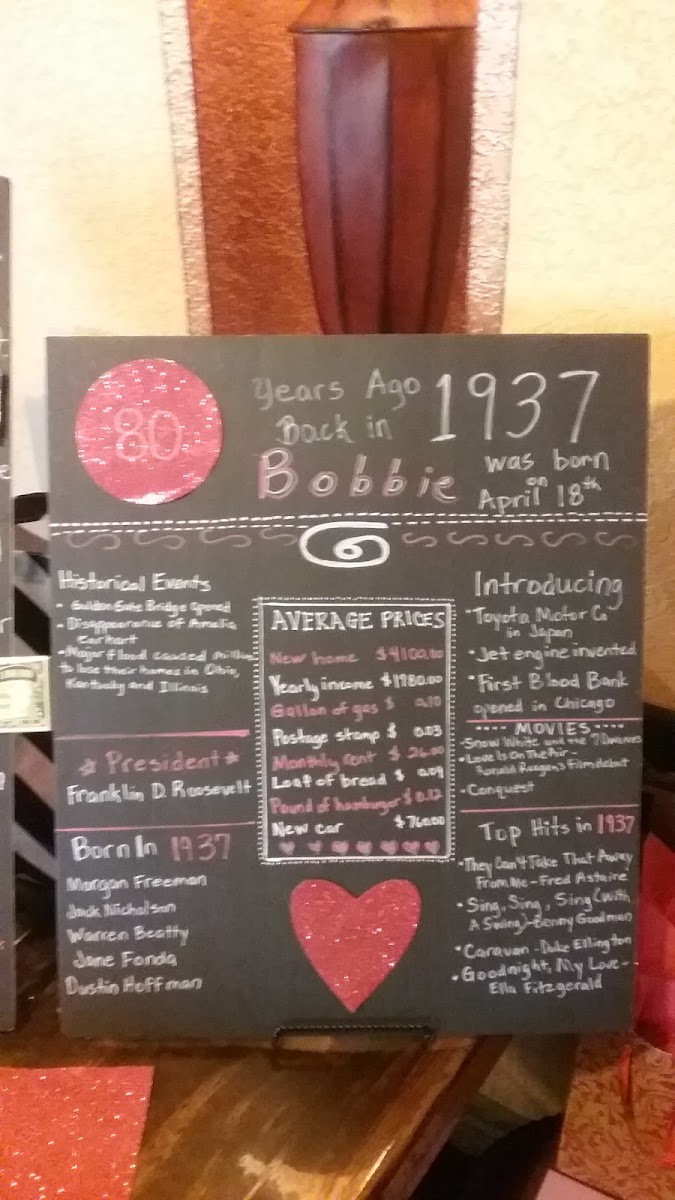 80
Years Ago
Back in
1937
Bobbie
was born
on
April 18th
Historical Events
- Golden Gate Bridge opened
- Disappearance of Amelia
Earhart
- Major flood caused million
to lose their homes in Ohio,
Kentucky and Illinois
President
Franklin D. Roosevelt
Born In 1937
Morgan Freeman
Jack Nicholson
Warren Beatty
Jane Fonda
Dustin Hoffman
AVERAGE PRICES
New home $4100.00
Yearly income $1780.00
Gallon of gas $ 0.10
Postage stamp $ 0.03
Monthly rent $ 26.00
Loaf of bread $ 0.09
Pound of hamburger $ 0.12
New car $760.00
Introducing
• Toyota Motor Co
in Japan
• Jet engine invented
• First Blood Bank
opened in Chicago
---- MOVIES ----
- Snow White and the 7 Dwarves
• Love Is On The Air -
Ronald Reagan's Film debut
- Conquest
Top Hits in 1937
• They Can't Take That Away
From Me - Fred Astaire
• Sing, Sing, Sing (with
A Swing) - Benny Goodman
• Caravan - Duke Ellington
• Goodnight, My Love -
Ella Fitzgerald